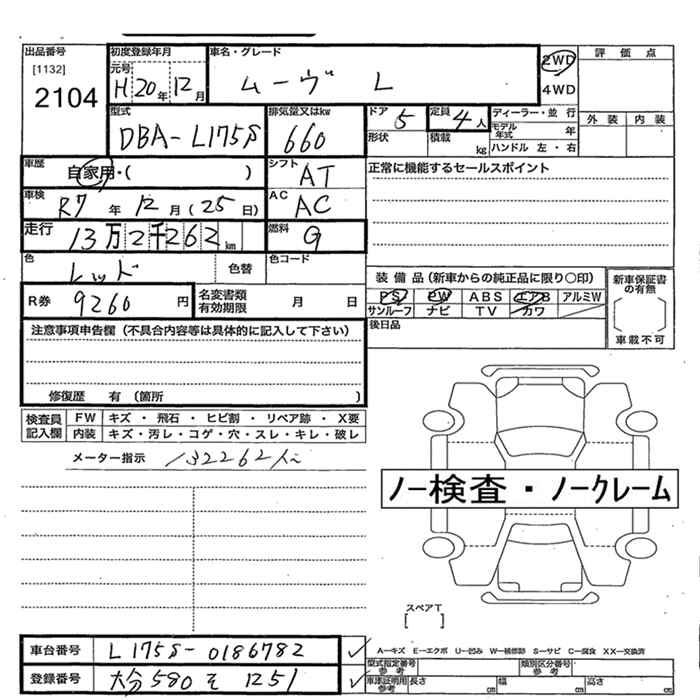 出品番号 [1132] 2104
初度登録年月 元号 H 20年 12月
車名・グレード ムーヴ L
2WD
4WD
評価点
外装 内装
型式 DBA-L175S
排気量又はkw 660
ドア 5
形状
定員 4人
積載 kg
ディーラー・並行
モデル年式 年
ハンドル 左・右
車歴 自家用・( )
シフト AT
正常に機能するセールスポイント
車検 R7年 12月(25日)
AC AC
走行 13万2千262km
燃料 G
色 レッド 色替
色コード
装備品(新車からの純正品に限り○印)
PS PW ABS エアB アルミW
サンルーフ ナビ TV カワ
後日品
新車保証書の有無
車載不可
R券 9260円
名変書類有効期限 月 日
注意事項申告欄(不具合内容等は具体的に記入して下さい)
修復歴 有(箇所 )
検査員記入欄
FW キズ・飛石・ヒビ割・リペア跡・X要
内装 キズ・汚レ・コゲ・穴・スレ・キレ・破レ
メーター指示 132262
ノー検査・ノークレーム
スペアT
[ ]
車台番号 L175S-0186782
登録番号 大分580そ1251
A-キズ E-エクボ U-凹み W-補修跡 S-サビ C-腐食 XX-交換済
型式指定番号 参考
類別区分番号 参考
車庫証明用 参考 長さ cm 幅 cm 高さ cm